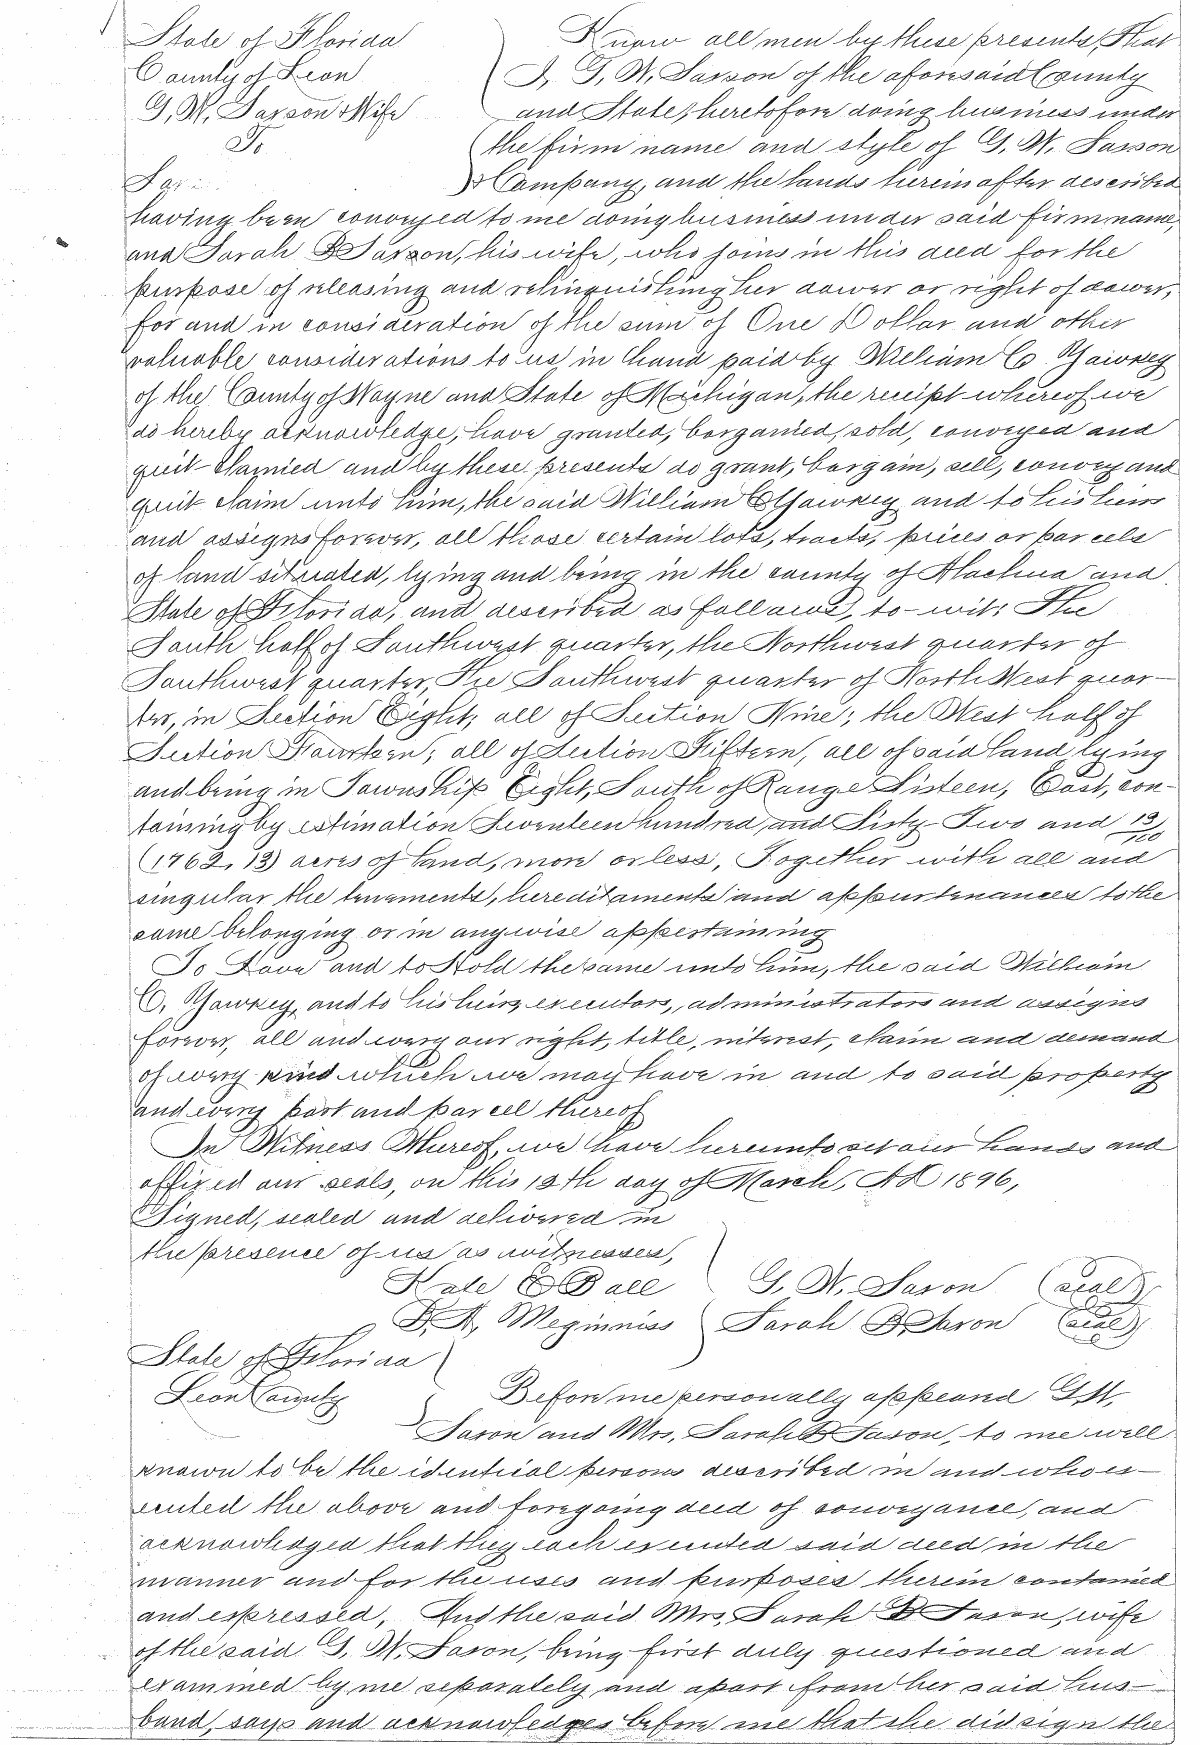 State of Florida
County of Leon
G. W. Saxson & Wife
To
Know all men by these presents, That
I, G. W. Saxson of the aforesaid County
and State, heretofore doing business under
the firm name and style of G. W. Saxson
& Company, and the lands hereinafter described
having been conveyed to me doing business under said firm name,
and Sarah B Saxson, his wife, who joins in this deed for the
purpose of releasing and relinquishing her dower or right of dower,
for and in consideration of the sum of One Dollar and other
valuable considerations to us in hand paid by William C Yawkey
of the County of Wayne and State of Michigan, the receipt whereof we
do hereby acknowledge, have granted, bargained, sold, conveyed and
quit-claimed and by these presents do grant, bargain, sell, convey and
quit claim unto him, the said William C Yawkey and to his heirs
and assigns forever, all those certain lots, tracts, pieces or parcels
of land situated, lying and being in the county of Alachua and
State of Florida, and described as follows, to-wit: The
South half of Southwest quarter, the Northwest quarter of
Southwest quarter, The Southwest quarter of North West quar-
ter, in Section Eight; all of Section Nine; the West half of
Section Fourteen; all of Section Fifteen, all of said land lying
and being in Township Eight, South of Range Sixteen, East, con-
taining by estimation Seventeen hundred and Sixty-Two and 13/100
(1762.13) acres of land, more or less, Together with all and
singular the tenements, hereditaments and appurtenances to the
same belonging or in anywise appertaining
To Have and to Hold the same unto him, the said William
C. Yawkey, and to his heirs, executors, administrators and assigns
forever, all and every our right, title, interest, claim and demand
of every kind which we may have in and to said property
and every part and parcel thereof
In Witness Whereof, we have hereunto set our hands and
affixed our seals, on this 13th day of March, AD 1896,
Signed, sealed and delivered in
the presence of us as witnesses,
Kate E Ball G. W. Saxon (seal)
D. A. Meginniss Sarah B. Saxon (seal)
State of Florida
Leon County
Before me personally appeared G. W.
Saxon and Mrs, Sarah B Saxon, to me well
known to be the identical persons described in and who ex-
ecuted the above and foregoing deed of conveyance, and
acknowledged that they each executed said deed in the
manner and for the uses and purposes therein contained
and expressed. And the said Mrs, Sarah B Saxon, wife
of the said G. W. Saxon, being first duly questioned and
examined by me separately and apart from her said hus-
band, says and acknowledges before me that she did sign the